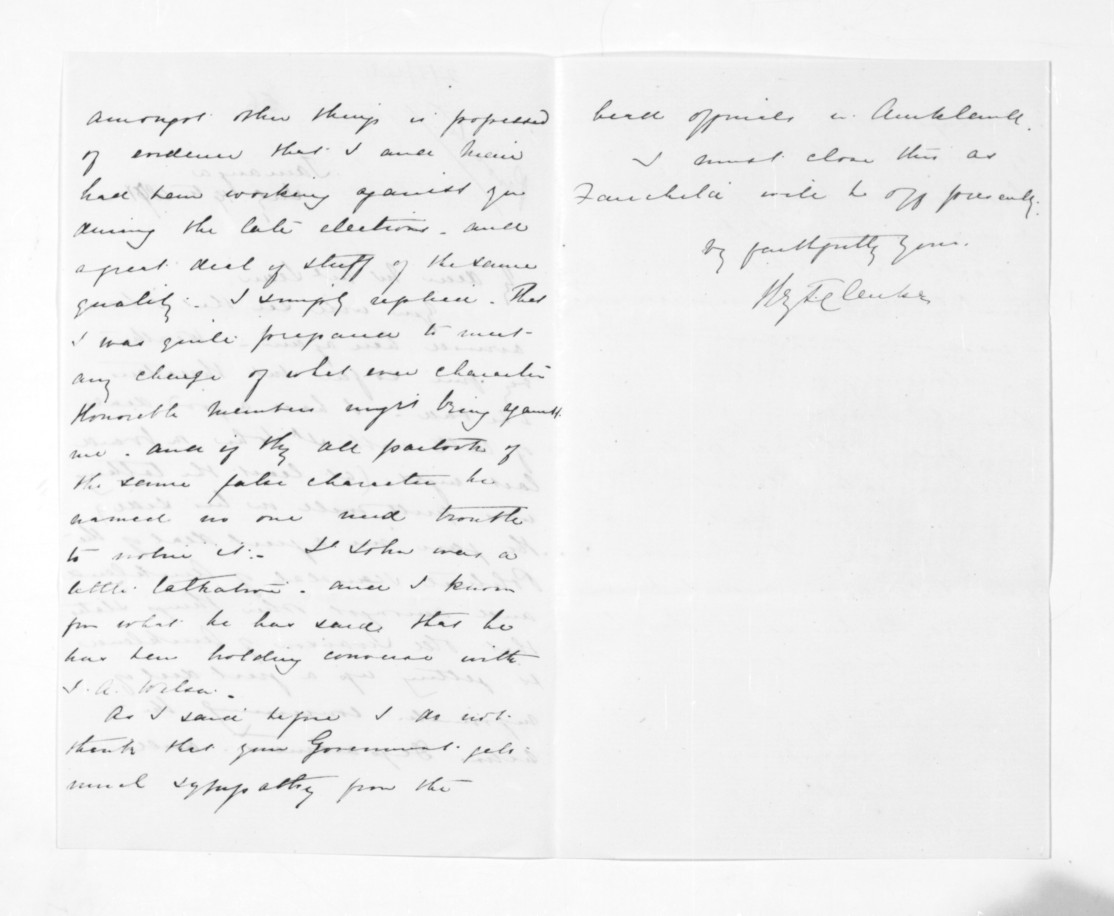 amongst other things is possessed
of evidence that I and Mair
had been working against you
during the late elections. and
a great deal of stuff of the same
quality. I simply replied. That
I was quite prepared to meet
any charge of what ever character
Honorable members might bring against
me. and if they all partook of
the same false character he
named no one need trouble
to notice it. St John was a
little and I know
from what he has said that he
has been holding converse with
J. A. Wilson.
As I said before I do not
think that your Government gets
much sympathy from the
head officials in Auckland.
I must close this as
Fairchild will be off presently.
Vy faithfully Yours.
Hy T Clarke